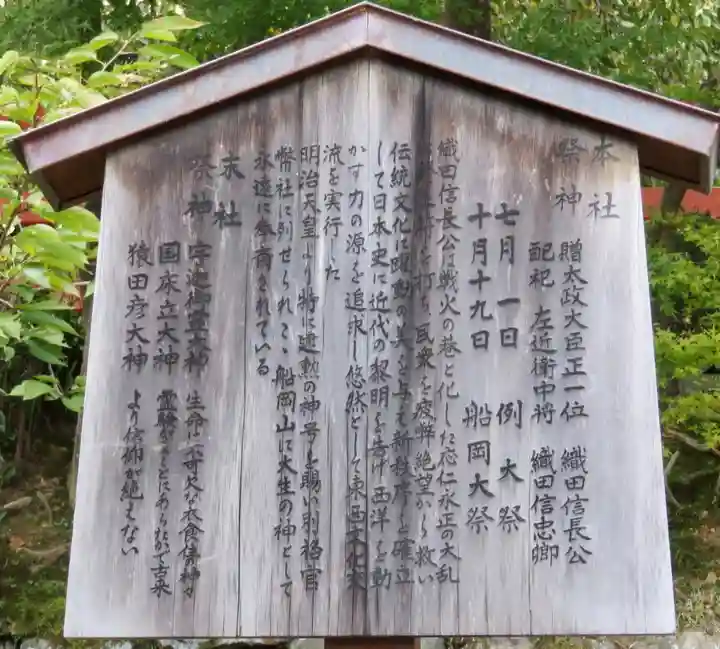 本社
祭神
贈太政大臣正一位 織田信長公
配祀 左近衛中将 織田信忠卿
七月一日 例大祭
十月十九日 船岡大祭
織田信長公は戦火の巷と化した応仁永正の大乱
を打ち民衆を疲弊絶望から救い
伝統文化に躍動の美を与え新秩序を確立
して日本史に近代の黎明を告げ西洋を動
かす力の源を追求し悠然として東西文化交
流を実行した
明治天皇より特に建勲の神号を賜い別格官
幣社に列せられここ船岡山に大生の神として
永遠に奉斎されている
末社
祭神
宇迦御霊大神 生命に不可欠な衣食住の神が
国床立大神 霊験がことにあらたかで古来
猿田彦大神 より信仰が絶えない